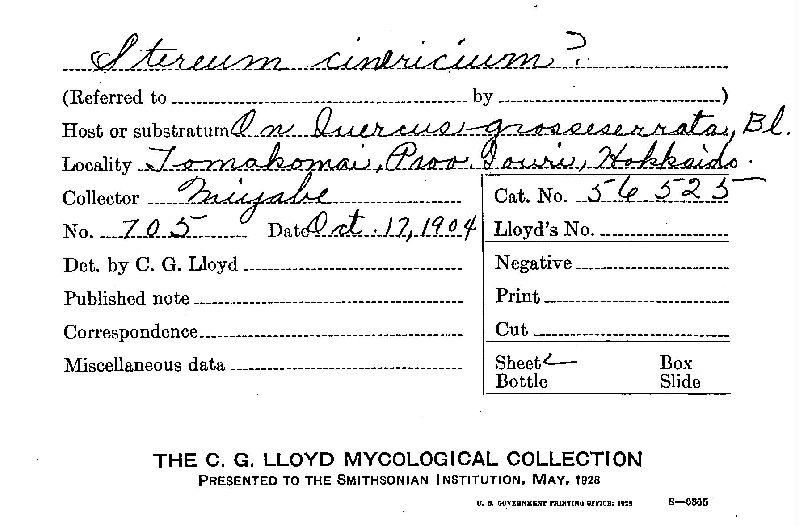 Stereum cinericium?
(Referred to by )
Host or substratum On Quercus grosseserrata, Bl.
Locality Tomakomai, Prov. Iburi, Hokkaido.
Collector Miyabe
Cat. No. 56525
No. 705 Date Oct. 17, 1904
Lloyd's No.
Det. by C. G. Lloyd
Negative
Published note
Print
Correspondence
Cut
Miscellaneous data
Sheet ✓ Box
Bottle Slide
THE C. G. LLOYD MYCOLOGICAL COLLECTION
PRESENTED TO THE SMITHSONIAN INSTITUTION, MAY, 1928
U. S. GOVERNMENT PRINTING OFFICE: 1928 8—6355